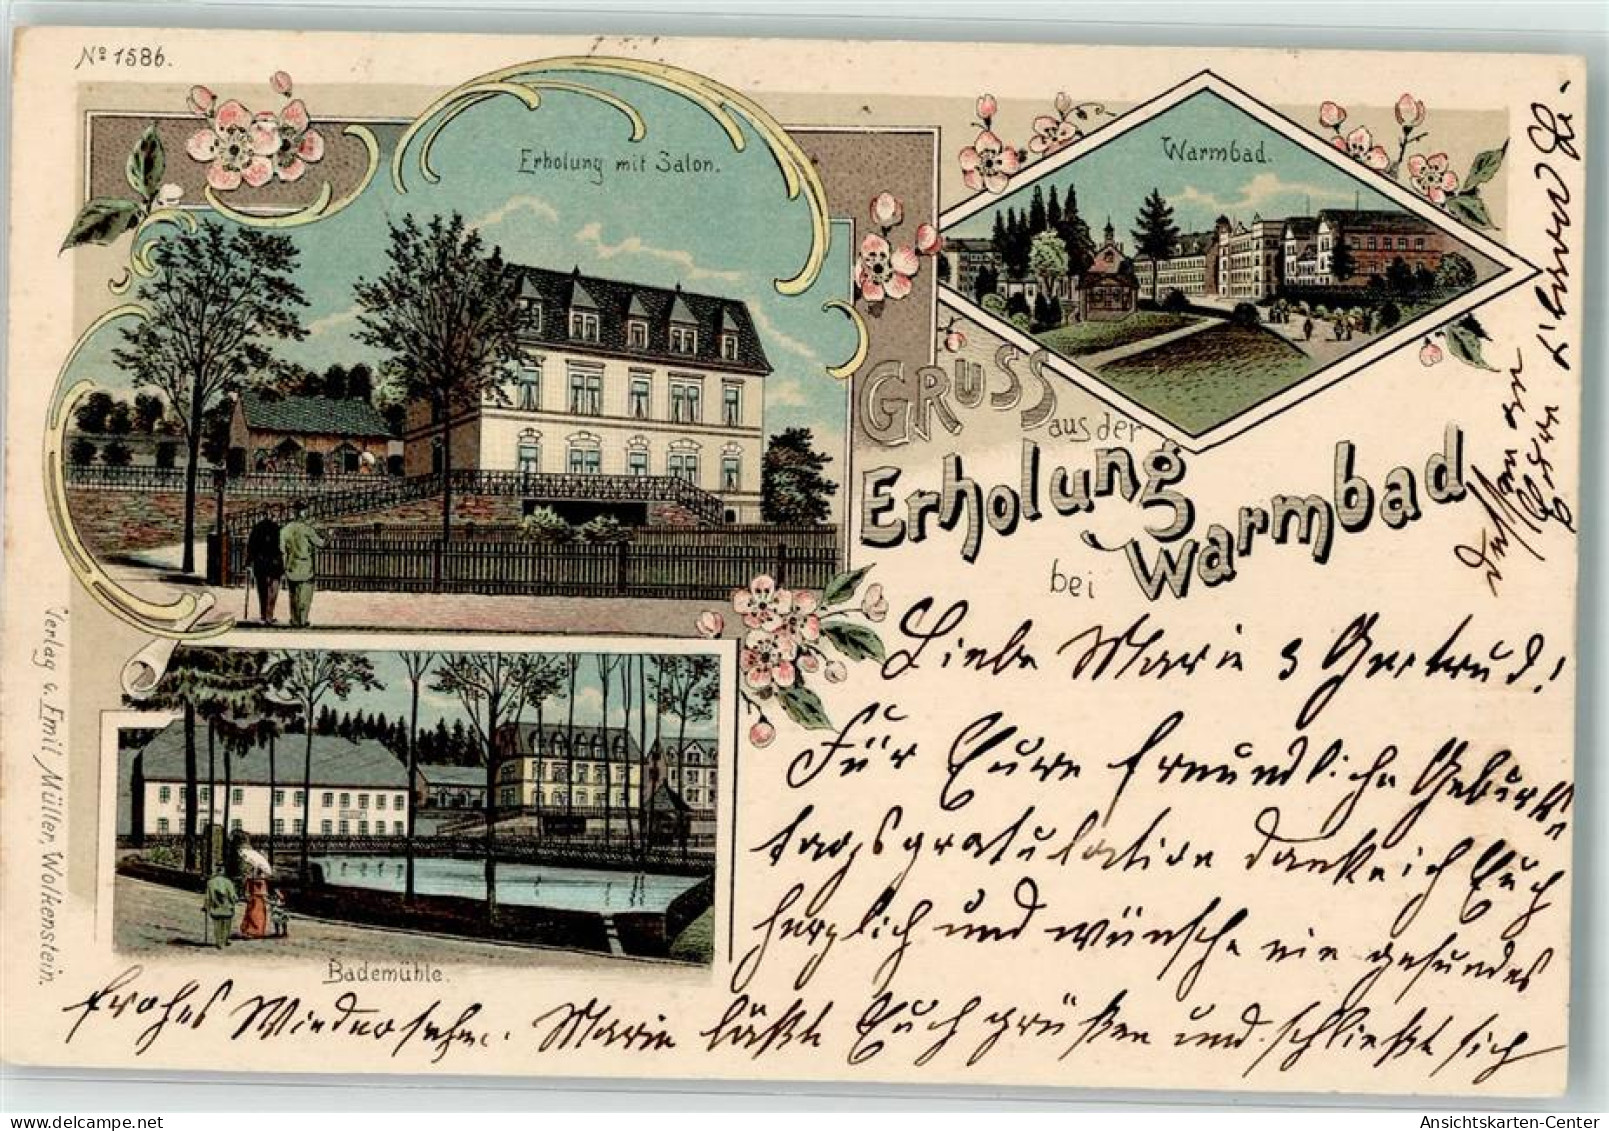 Nº 1586.
Erholung mit Salon.
Warmbad.
GRUSS
aus der
Erholung
bei Warmbad
Bademühle.
Verlag v. Emil Müller, Wolkenstein.
Liebe Marie & Gertrud!
Für Eure freundliche Geburts
tagsgratulation danke ich Euch
herzlich und wünsche ein gesundes
frohes Wiedersehn. Marie läßt Euch grüßen und schließt sich
Ansichtskarten-Center